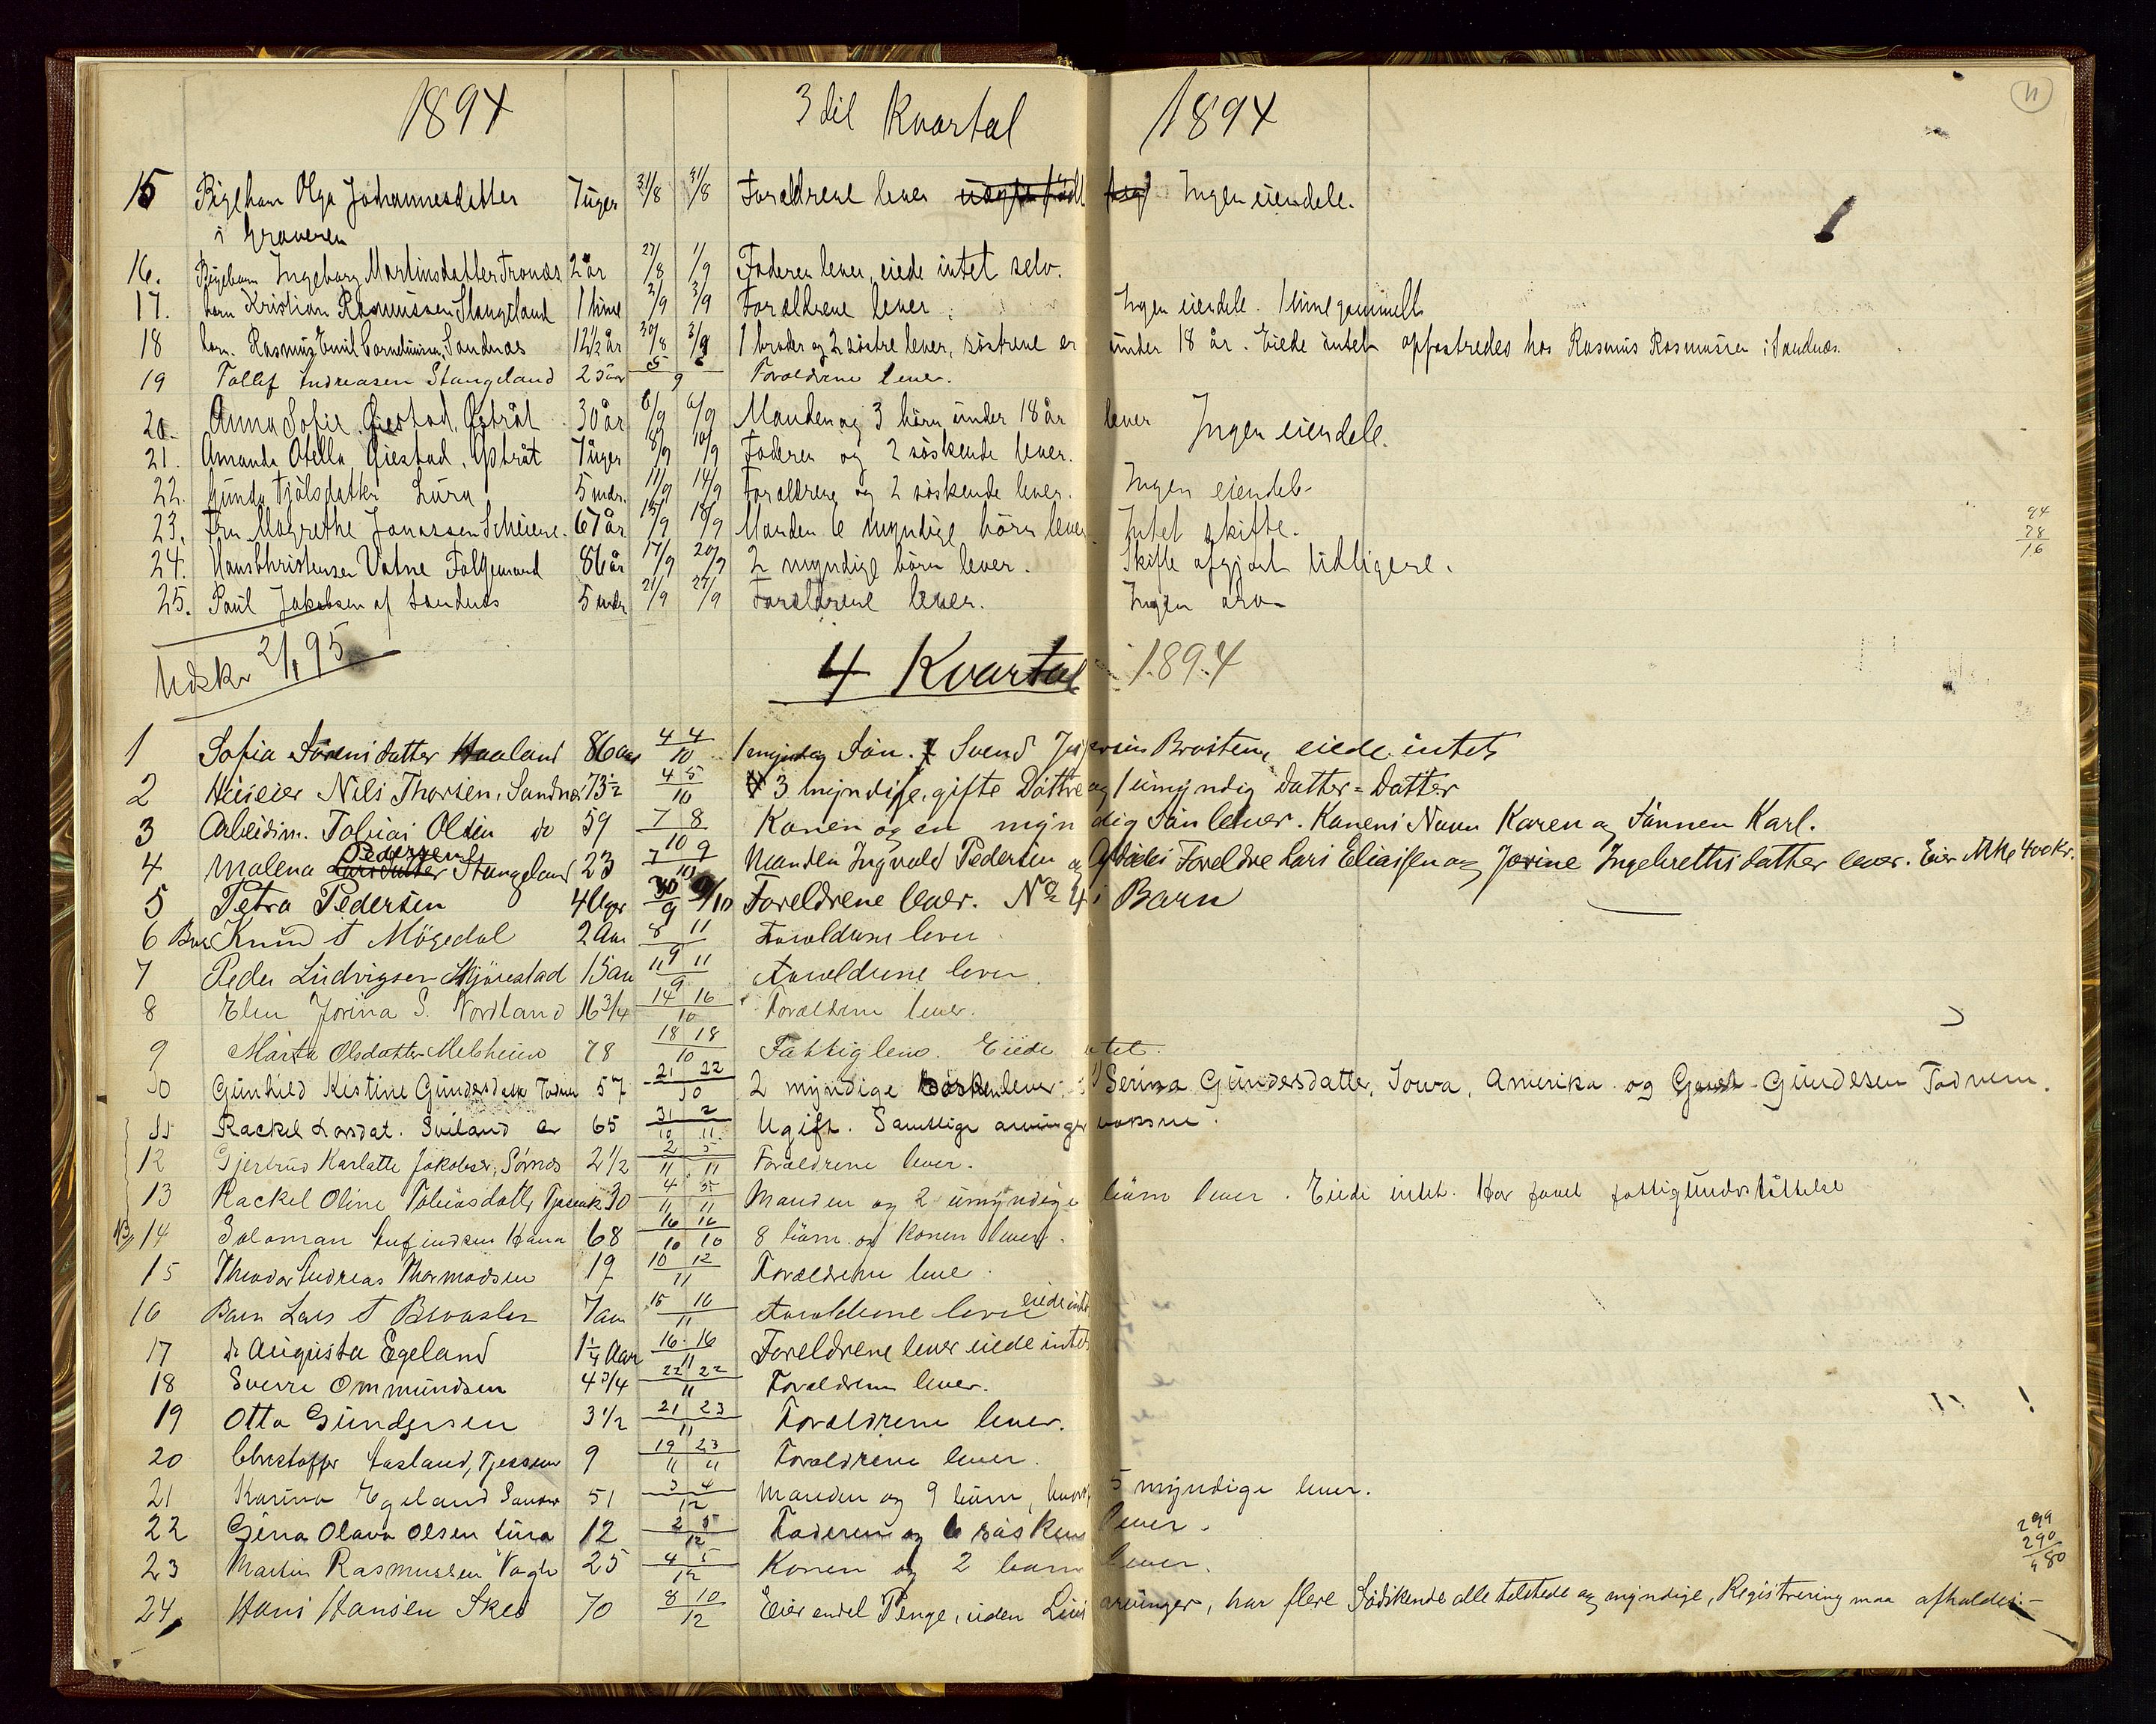 1894 3die Kvartal 1894
11
15 Pigebarn Olga Johannesdatter 7 uger 31/8 31/8 Forældrene lever Ingen eiendele.
i Graveren
16. Pigebarn Ingeborg Martinsdatter Tronæs 2 år 27/8 1/9 Faderen lever, eiede intet selv.
17. barn Kristian Rasmussen Stangeland 1 time 2/9 3/9 Forældrene lever. Ingen eiendele. 1 time gammelt
18 barn. Rasmus Emil Corneliussen, Sandnæs 12½ år 30/8 3/9 1 broder og 2 söstre lever, söstrene er under 18 år. Eiede intet opfostredes hos Rasmus Rasmussen i Sandnæs.
19 Tollef Andreasen Stangeland 25 aar 5 6 9 Forældrene lever.
20. Anna Sofie Giestad, Østråt 30 år 6/9 6/9 Manden og 3 börn under 18 år lever Ingen eiendele.
21. Amanda Otella Giestad, Østråt 7 uger 8/9 10/9 Faderen og 2 söskende lever.
22. Gunda Tjölsdatter Lura 5 mdr. 11/9 14/9 Forældrene og 2 söskende lever. Ingen eiendele
23. Fru Margrethe Jonassen Scheiene. 67 år 15/9 18/9 Manden 6 myndige börn lever. Intet skifte.
84
28
16
24. Hans Christensen Vatne Følgemand 86 år 17/9 20/9 2 myndige börn lever. Skifte afgjort tidligere.
25. Paul Jakobsen af Sandnæs 5 mdr 21/9 27/9 Forældrene lever. Ingen arv
Udskr 2/1 95
4 Kvartal 1894
1 Sofia Sörensdatter Haaland 86 aar 4 4 10 1 myndig Sön. Svend Brosten, eiede intet
2 Huseier Nils Thorsen, Sandnes 73½ 4 5 10 3 myndige, gifte Döttre og 1 umyndig Datter-Datter
3 Arbeidsm. Tobias Olsen do 59 7 8 10 Konen og en myndig Sön lever. Konens Navn Karen og Sönnen Karl.
Pedersen
4 Malena Larsdatter Stangeland 23 7 9 10 Manden Ingvald Pedersen og Foreldre Lars Eliassen og Jorine Ingebrethsdatter lever. Eier 400 Kr.
5 Petra Pedersen 4 Uger 30 9 9/10 Foreldrene lever. No 4s Barn
6 Barn Knud T Mögedal 2 Aar 8 11 9 Forældrene lever
7 Peder Ludvigsen Skjörestad 15 aar 11 11 9 Forældrene lever
8 Elen Jorina S. Nordland 16 3/4 14 16 10 Forældrene lever.
9 Marta Olsdatter Melsheim 78 18 18 10 Fattiglem. Eiede intet.
10 Gunhild Kistine Gundersdatter Todnem 57 21 22 10 2 myndige lever: Serina Gundersdatter, Iowa, Amerika og Gundersen Todnem.
11 Rackel Larsdat. Sviland 65 31 2 10 11 Ugift. Samtlige arvinger voksne.
12 Gjertrud Karlatte Jakobsen, Sörnæs 2½ 2 5 11 11 Forældrene lever.
13 Rackel Oline Tobiasdatter 30 4 5 11 11 Manden og 2 umyndige börn lever. Eiede intet. Har faaet fattigunderstöttelse
14 Saloman Hana 68 16 16 10 10 8 börn og Konen lever.
15 Theodor Andreas Thormodsen 19 10 12 11 Forældrene lever.
16 Barn Lars T Braasten 7 aar 15 16 11 Forældrene lever eiede intet
17 do Augusta Egeland 1¼ Aar 16 16 11 Foreldrene lever eiede intet
18 Sverre Ommundsen 4 3/4 22 22 11 Forældrene lever.
19 Otto Gundersen 3½ 21 23 11 Forældrene lever.
20 Christoffer Aasland, 9 19 23 11 11 Forældrene lever.
21 Karina Egeland Sandnes 51 3 4 12 Manden og 9 börn, hvoraf 5 myndige lever.
22 Gina Olava Olsen Lura 12 2 5 12 Faderen og 6 söskend lever.
23 Martin Rasmussen Vagle 25 4 5 12 Konen og 2 barn lever.
299
290
24 Hans Hansen Skeo 70 8 10 12 Eier endel Penge, uden Livsarvinger, har flere Södskende alle tilstede og myndige, Registrering maa afholdes.